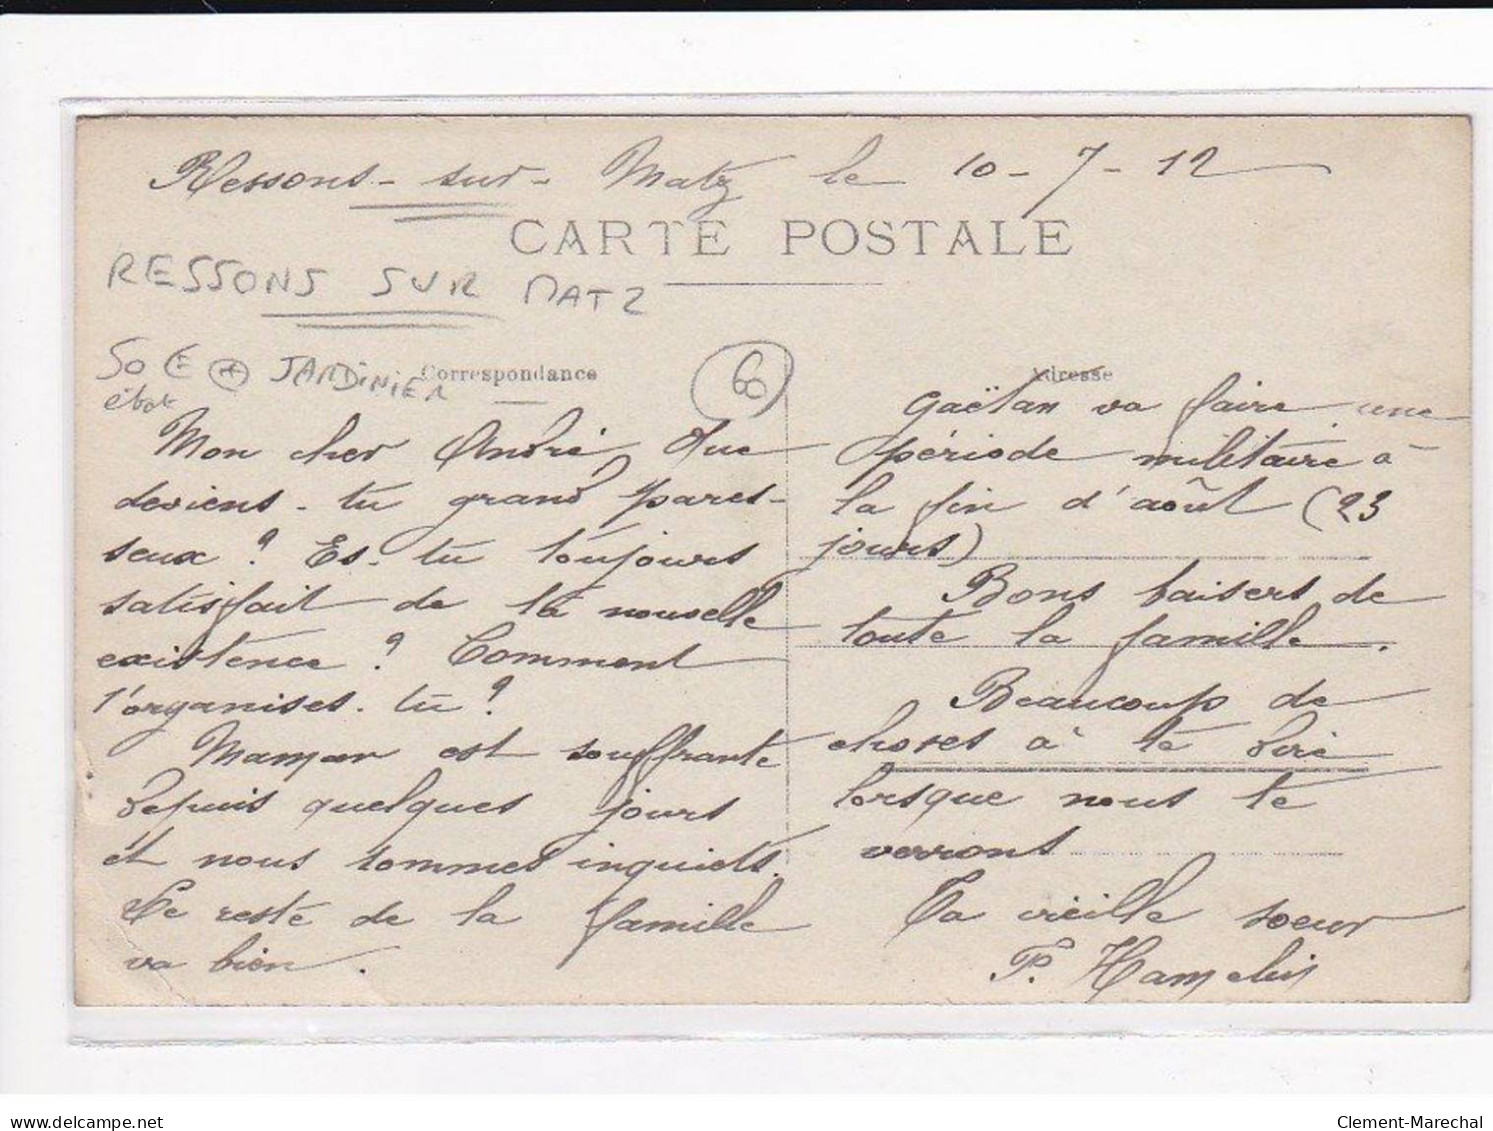 Ressons-sur-Matz le 10-7-12
CARTE POSTALE
RESSONS SUR MATZ
50 € + JARDINIER
état
60
Correspondance
Mon cher André, Que
deviens-tu grand pares-
seux ? Es-tu toujours
satisfait de ta nouvelle
existence ? Comment
t'organises-tu ?
Maman est souffrante
depuis quelques jours
et nous sommes inquiets.
Le reste de la famille
va bien.
Adresse
Gaëtan va faire une
période militaire à
la fin d'août (23
jours)
Bons baisers de
toute la famille.
Beaucoup de
choses à te dire
lorsque nous te
verrons
Ta vieille soeur
P. Hamelin
www.delcampe.net
Clement-Marechal